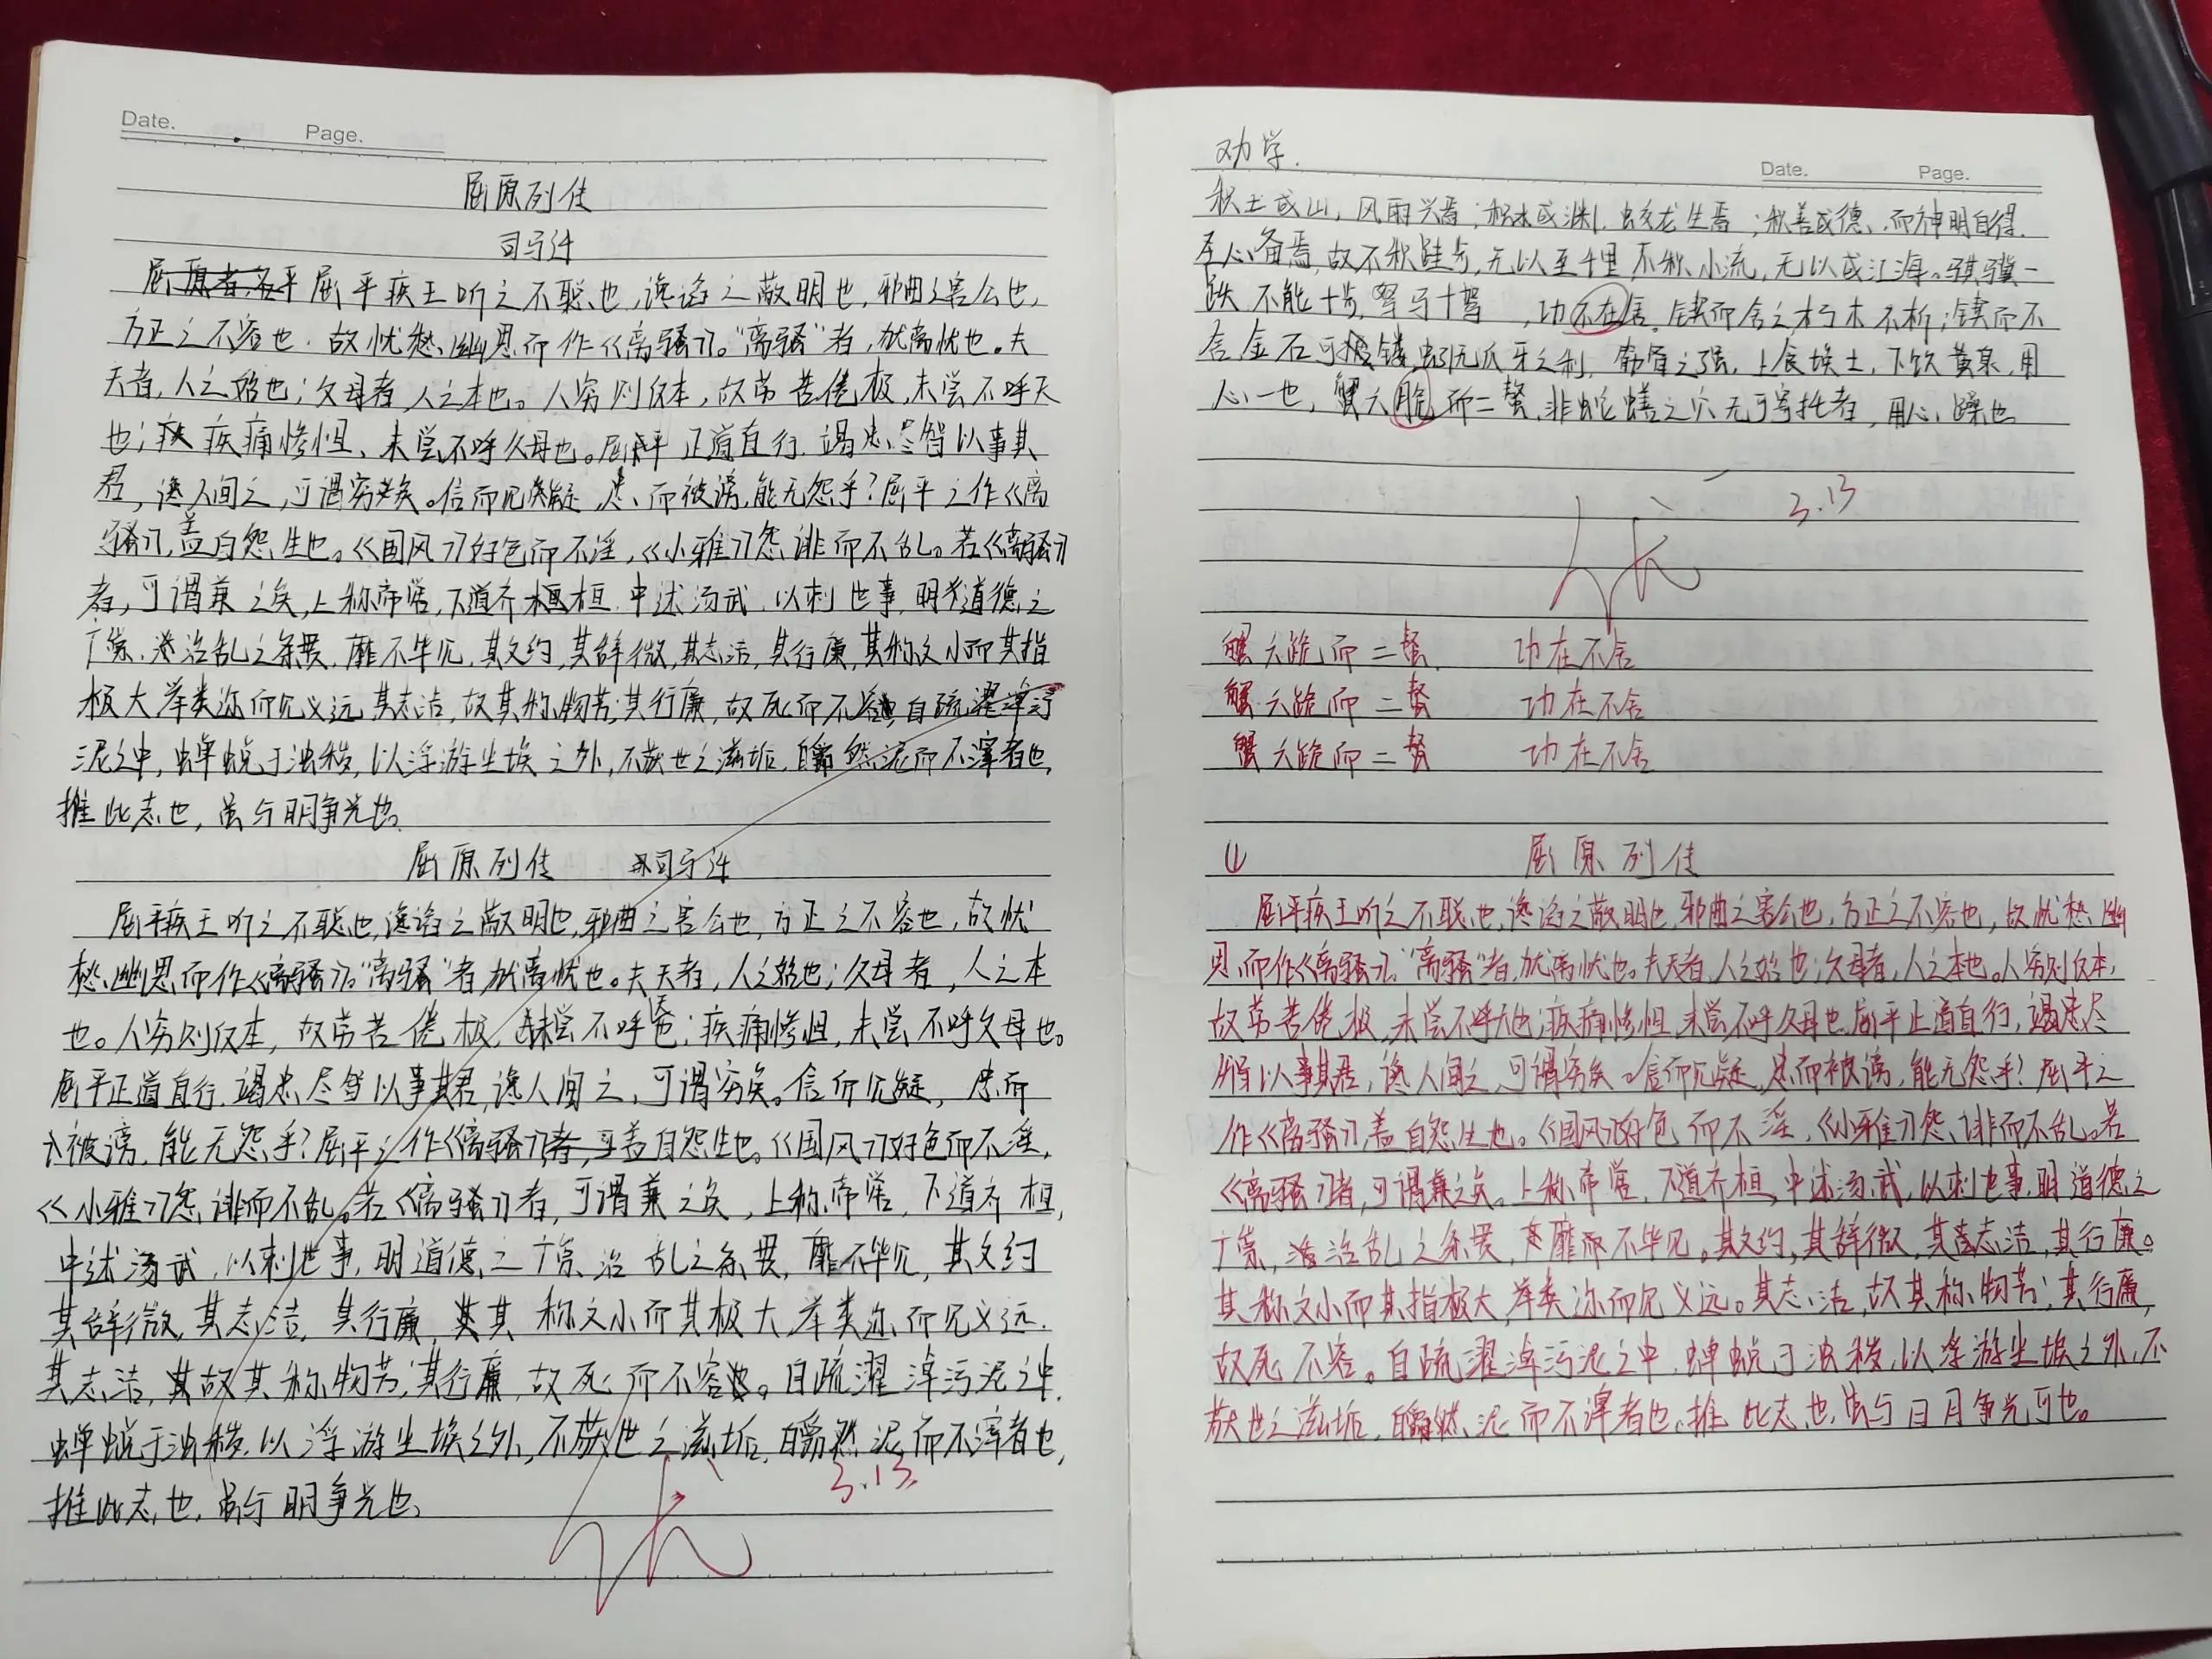 Date. Page.
屈原列传
司马迁
屈原者,名平屈平疾王听之不聪也,谗谄之蔽明也,邪曲之害公也,
方正之不容也.故忧愁幽思而作《离骚》。“离骚”者,犹离忧也。夫
天者,人之始也;父母者,人之本也。人穷则反本,故劳苦倦极,未尝不呼天
也;疾痛惨怛、未尝不呼父母也。屈平正道直行.竭忠尽智以事其
君,谗人间之,可谓穷矣。信而见疑,忠而被谤,能无怨乎?屈平之作《离
骚》,盖自怨生也。《国风》好色而不淫,《小雅》怨诽而不乱。若《离骚》
者,可谓兼之矣,上称帝喾,下道齐桓.中述汤武.以刺世事.明道德之
广崇.治乱之条贯,靡不毕见,其文约,其辞微,其志洁,其行廉,其称文小而其指
极大举类迩而见义远.其志洁,故其称物芳;其行廉,故死而不容,自疏濯淖污
泥之中,蝉蜕于浊秽,以浮游尘埃之外,不获世之滋垢,皭然泥而不滓者也,
推此志也,虽与明争光也.
屈原列传 司马迁
屈平疾王听之不聪也,谗谄之蔽明也,邪曲之害公也,方正之不容也,故忧
愁幽思而作《离骚》。“离骚”者犹离忧也。夫天者,人之始也;父母者,人之本
也。人穷则反本,故劳苦倦极,未尝不呼天也;疾痛惨怛,未尝不呼父母也。
屈平正道直行.竭忠尽智以事其君,谗人间之,可谓穷矣。信而见疑,忠而
被谤,能无怨乎?屈平之作《离骚》者,盖自怨生也。《国风》好色而不淫,
《小雅》怨诽而不乱。若《离骚》者,可谓兼之矣,上称帝喾,下道齐桓,
中述汤武,以刺世事,明道德之广崇、治乱之条贯,靡不毕见,其文约
其辞微,其志洁,其行廉,其称文小而其极大,举类迩而见义远.
其志洁,故其称物芳;其行廉,故死而不容也。自疏濯淖污泥之中.
蝉蜕于浊秽,以浮游尘埃之外,不获世之滋垢,皭然泥而不滓者也,
推此志也,虽与明争光也、
优 3.13
劝学.
Date. Page.
积土成山,风雨兴焉;积水成渊,蛟龙生焉;积善成德、而神明自得.
圣心备焉,故不积跬步,无以至千里 不积小流,无以成江海。骐骥一
跃 不能十步,驽马十驾,功不在舍.锲而舍之朽木不折;锲而不
舍金石可镂,蚓无爪牙之利,筋骨之强,上食埃土,下饮黄泉,用
心一也,蟹六脆而二螯,非蛇蟮之穴无可寄托者,用心躁也
优 3.13
蟹六跪而二螯. 功在不舍
蟹六跪而二螯 功在不舍
蟹六跪而二螯 功在不舍
屈原列传
屈平疾王听之不聪也,谗谄之蔽明也,邪曲之害公也,方正之不容也,故忧愁幽
思而作《离骚》。“离骚”者,犹离忧也。夫天者,人之始也;父母者,人之本也。人穷则反本,
故劳苦倦极,未尝不呼天也;疾痛惨怛,未尝不呼父母也.屈平正道直行,竭忠尽
智以事其君,谗人间之,可谓穷矣。信而见疑,忠而被谤,能无怨乎?屈平之
作《离骚》,盖自怨生也。《国风》好色而不淫,《小雅》怨诽而不乱。若
《离骚》者,可谓兼之矣。上称帝喾,下道齐桓,中述汤武,以刺世事.明道德之
广崇,治乱之条贯,靡不毕见。其文约,其辞微,其志洁,其行廉。
其称文小而其指极大,举类迩而见义远。其志洁,故其称物芳;其行廉,
故死不容。自疏濯淖污泥之中,蝉蜕于浊秽,以浮游尘埃之外,不
获世之滋垢,皭然泥而不滓者也.推此志也,虽与日月争光可也。